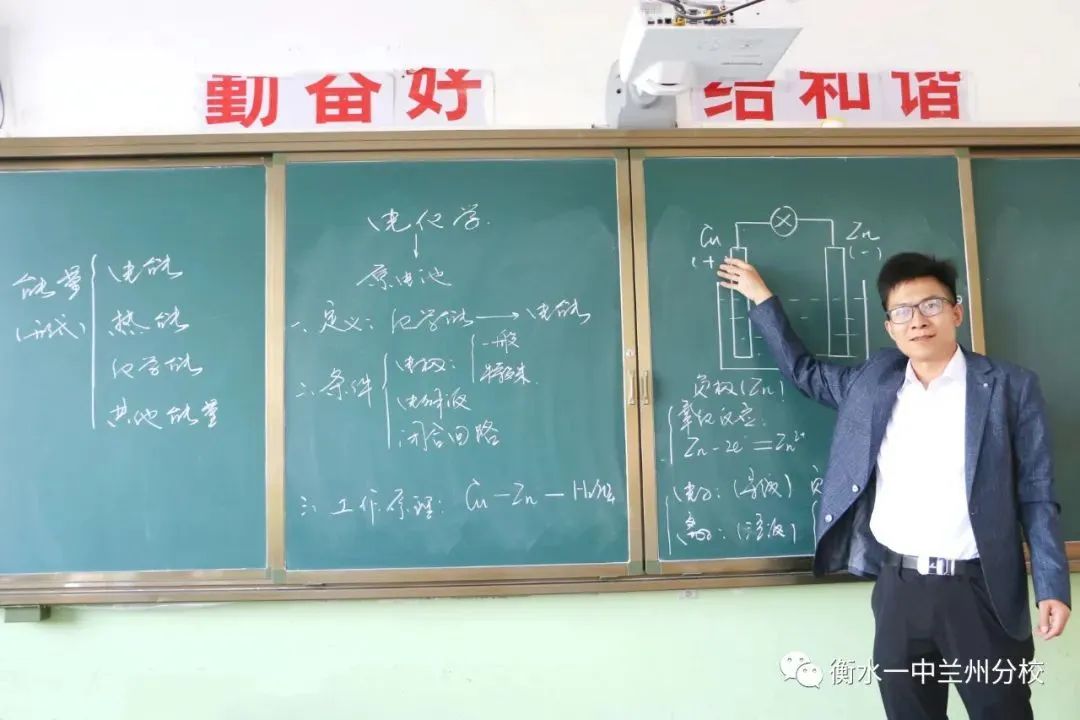 勤奋好
结和谐
能量
(形式)
电能
热能
化学能
其他能量
电化学
↓
原电池
一、定义: 化学能→电能
二、条件
电极:
一般
特殊
电解液
闭合回路
三、工作原理: Cu-Zn-
Cu
(+
Zn
(-)
负极(Zn)
Zn-2e⁻=Zn²⁺
电子: (导线)
离子: (溶液)
负
衡水一中兰州分校